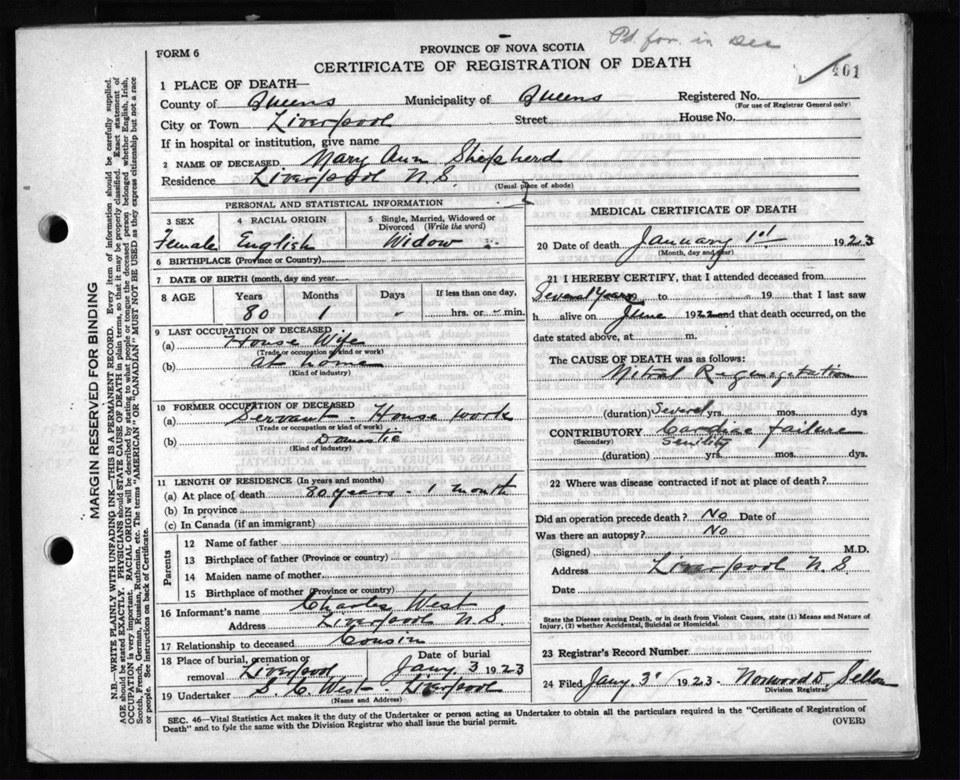 Pd. for in Dec
PROVINCE OF NOVA SCOTIA
FORM 6
CERTIFICATE OF REGISTRATION OF DEATH
461
1 PLACE OF DEATH—
County of Queens Municipality of Queens Registered No.
(For use of Registrar General only)
City or Town Liverpool Street House No.
If in hospital or institution, give name
2 NAME OF DECEASED Mary Ann Shepherd
Residence Liverpool N.S.
(Usual place of abode)
PERSONAL AND STATISTICAL INFORMATION
3 SEX 4 RACIAL ORIGIN 5 Single, Married, Widowed or Divorced (Write the word)
Female English Widow
6 BIRTHPLACE (Province or Country)
7 DATE OF BIRTH (month, day and year)
8 AGE Years Months Days If less than one day,
80 1 " hrs. or min.
9 LAST OCCUPATION OF DECEASED
(a) House Wife
(Trade or occupation or kind of work)
(b) At home
(Kind of industry)
10 FORMER OCCUPATION OF DECEASED
(a) Servant - House work
(Trade or occupation or kind of work)
(b) Domestic
(Kind of industry)
11 LENGTH OF RESIDENCE (In years and months)
(a) At place of death 80 years - 1 month
(b) In province
(c) In Canada (if an immigrant)
Parents
12 Name of father
13 Birthplace of father (Province or country)
14 Maiden name of mother
15 Birthplace of mother (Province or country)
16 Informant's name Charles West
Address Liverpool N.S.
17 Relationship to deceased Cousin
18 Place of burial, cremation or removal Liverpool Date of burial Jany. 3 1923
19 Undertaker S. C. West - Liverpool
(Name and Address)
MEDICAL CERTIFICATE OF DEATH
20 Date of death January 1st 1923
(Month, day and year)
21 I HEREBY CERTIFY, that I attended deceased from
Several Years to 19 that I last saw
h alive on June 1922 and that death occurred, on
date stated above, at m.
The CAUSE OF DEATH was as follows:
Mitral Regurgitation
(duration) Several yrs. mos. dys
CONTRIBUTORY Cardiac failure
(Secondary) Senility
(duration) yrs. mos. dys.
22 Where was disease contracted if not at place of death?
Did an operation precede death? No Date of
Was there an autopsy? No
(Signed) M.D.
Address Liverpool N.S.
Date
State the Disease causing Death, or in death from Violent Causes, state (1) Means and Nature of Injury, (2) whether Accidental, Suicidal or Homicidal.
23 Registrar's Record Number
24 Filed Jany 3rd 1923 Norwood
Division Registrar
SEC. 46—Vital Statistics Act makes it the duty of the Undertaker or person acting as Undertaker to obtain all the particulars required in the "Certificate of Registration of
Death" and to fyle the same with the Division Registrar who shall issue the burial permit. (OVER)
MARGIN RESERVED FOR BINDING
N.B.—WRITE PLAINLY WITH UNFADING INK—THIS IS A PERMANENT RECORD. Every item of information should be carefully supplied.
AGE should be stated EXACTLY. PHYSICIANS should STATE CAUSE OF DEATH in plain terms, so that it may be properly classified. Exact statement of
OCCUPATION is very important. RACIAL ORIGIN will be described by stating to what people or tongue the deceased person belonged whether English, Irish,
Scotch, French, German, Russian, Ruthenian, etc. The terms "AMERICAN" OR "CANADIAN" MUST NOT BE USED as they express citizenship but not a race
or people. See instructions on back of Certificate.